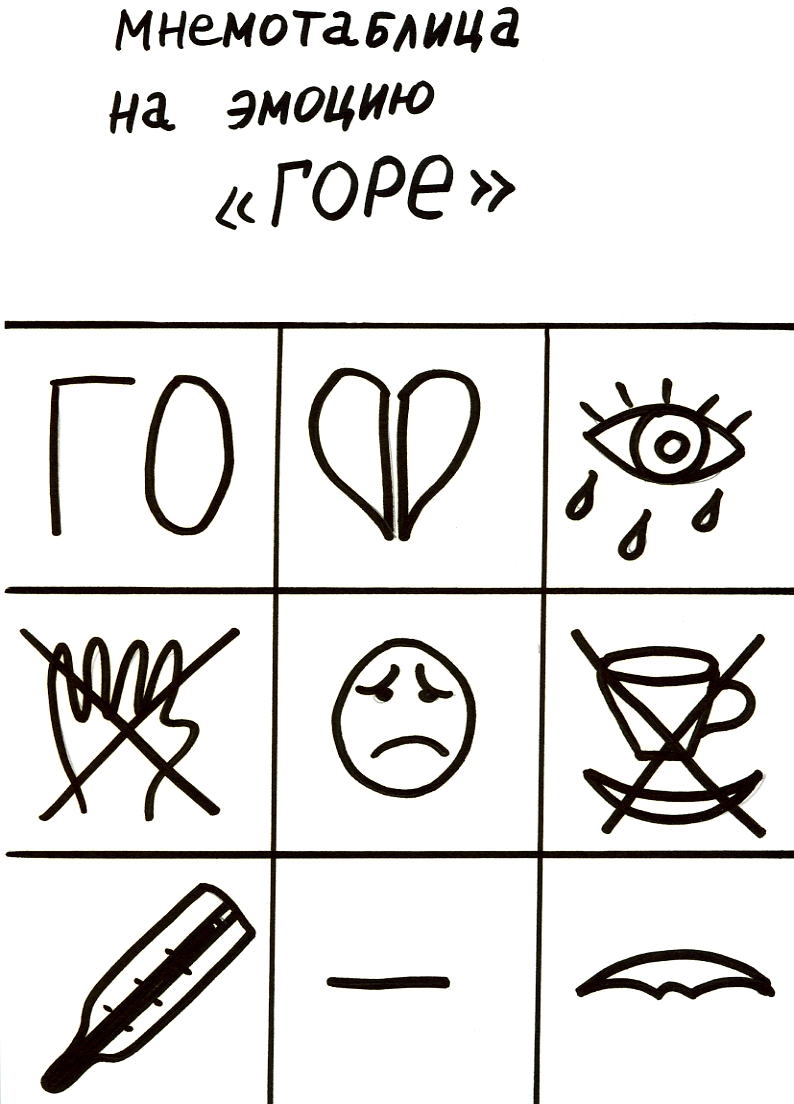 мнемотаблица
на эмоцию
«ГОРЕ»
ГО